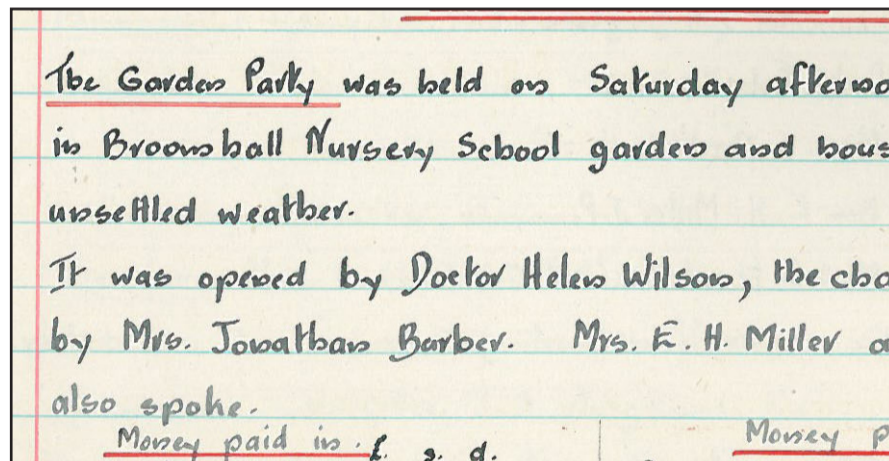 The Garden Party was held on Saturday afternoo
in Broomhall Nursery School garden and hous
unsettled weather.
It was opened by Doctor Helen Wilson, the cha
by Mrs. Jonathan Barber. Mrs. E. H. Miller a
also spoke.
Money paid in. £. s. d. Money p